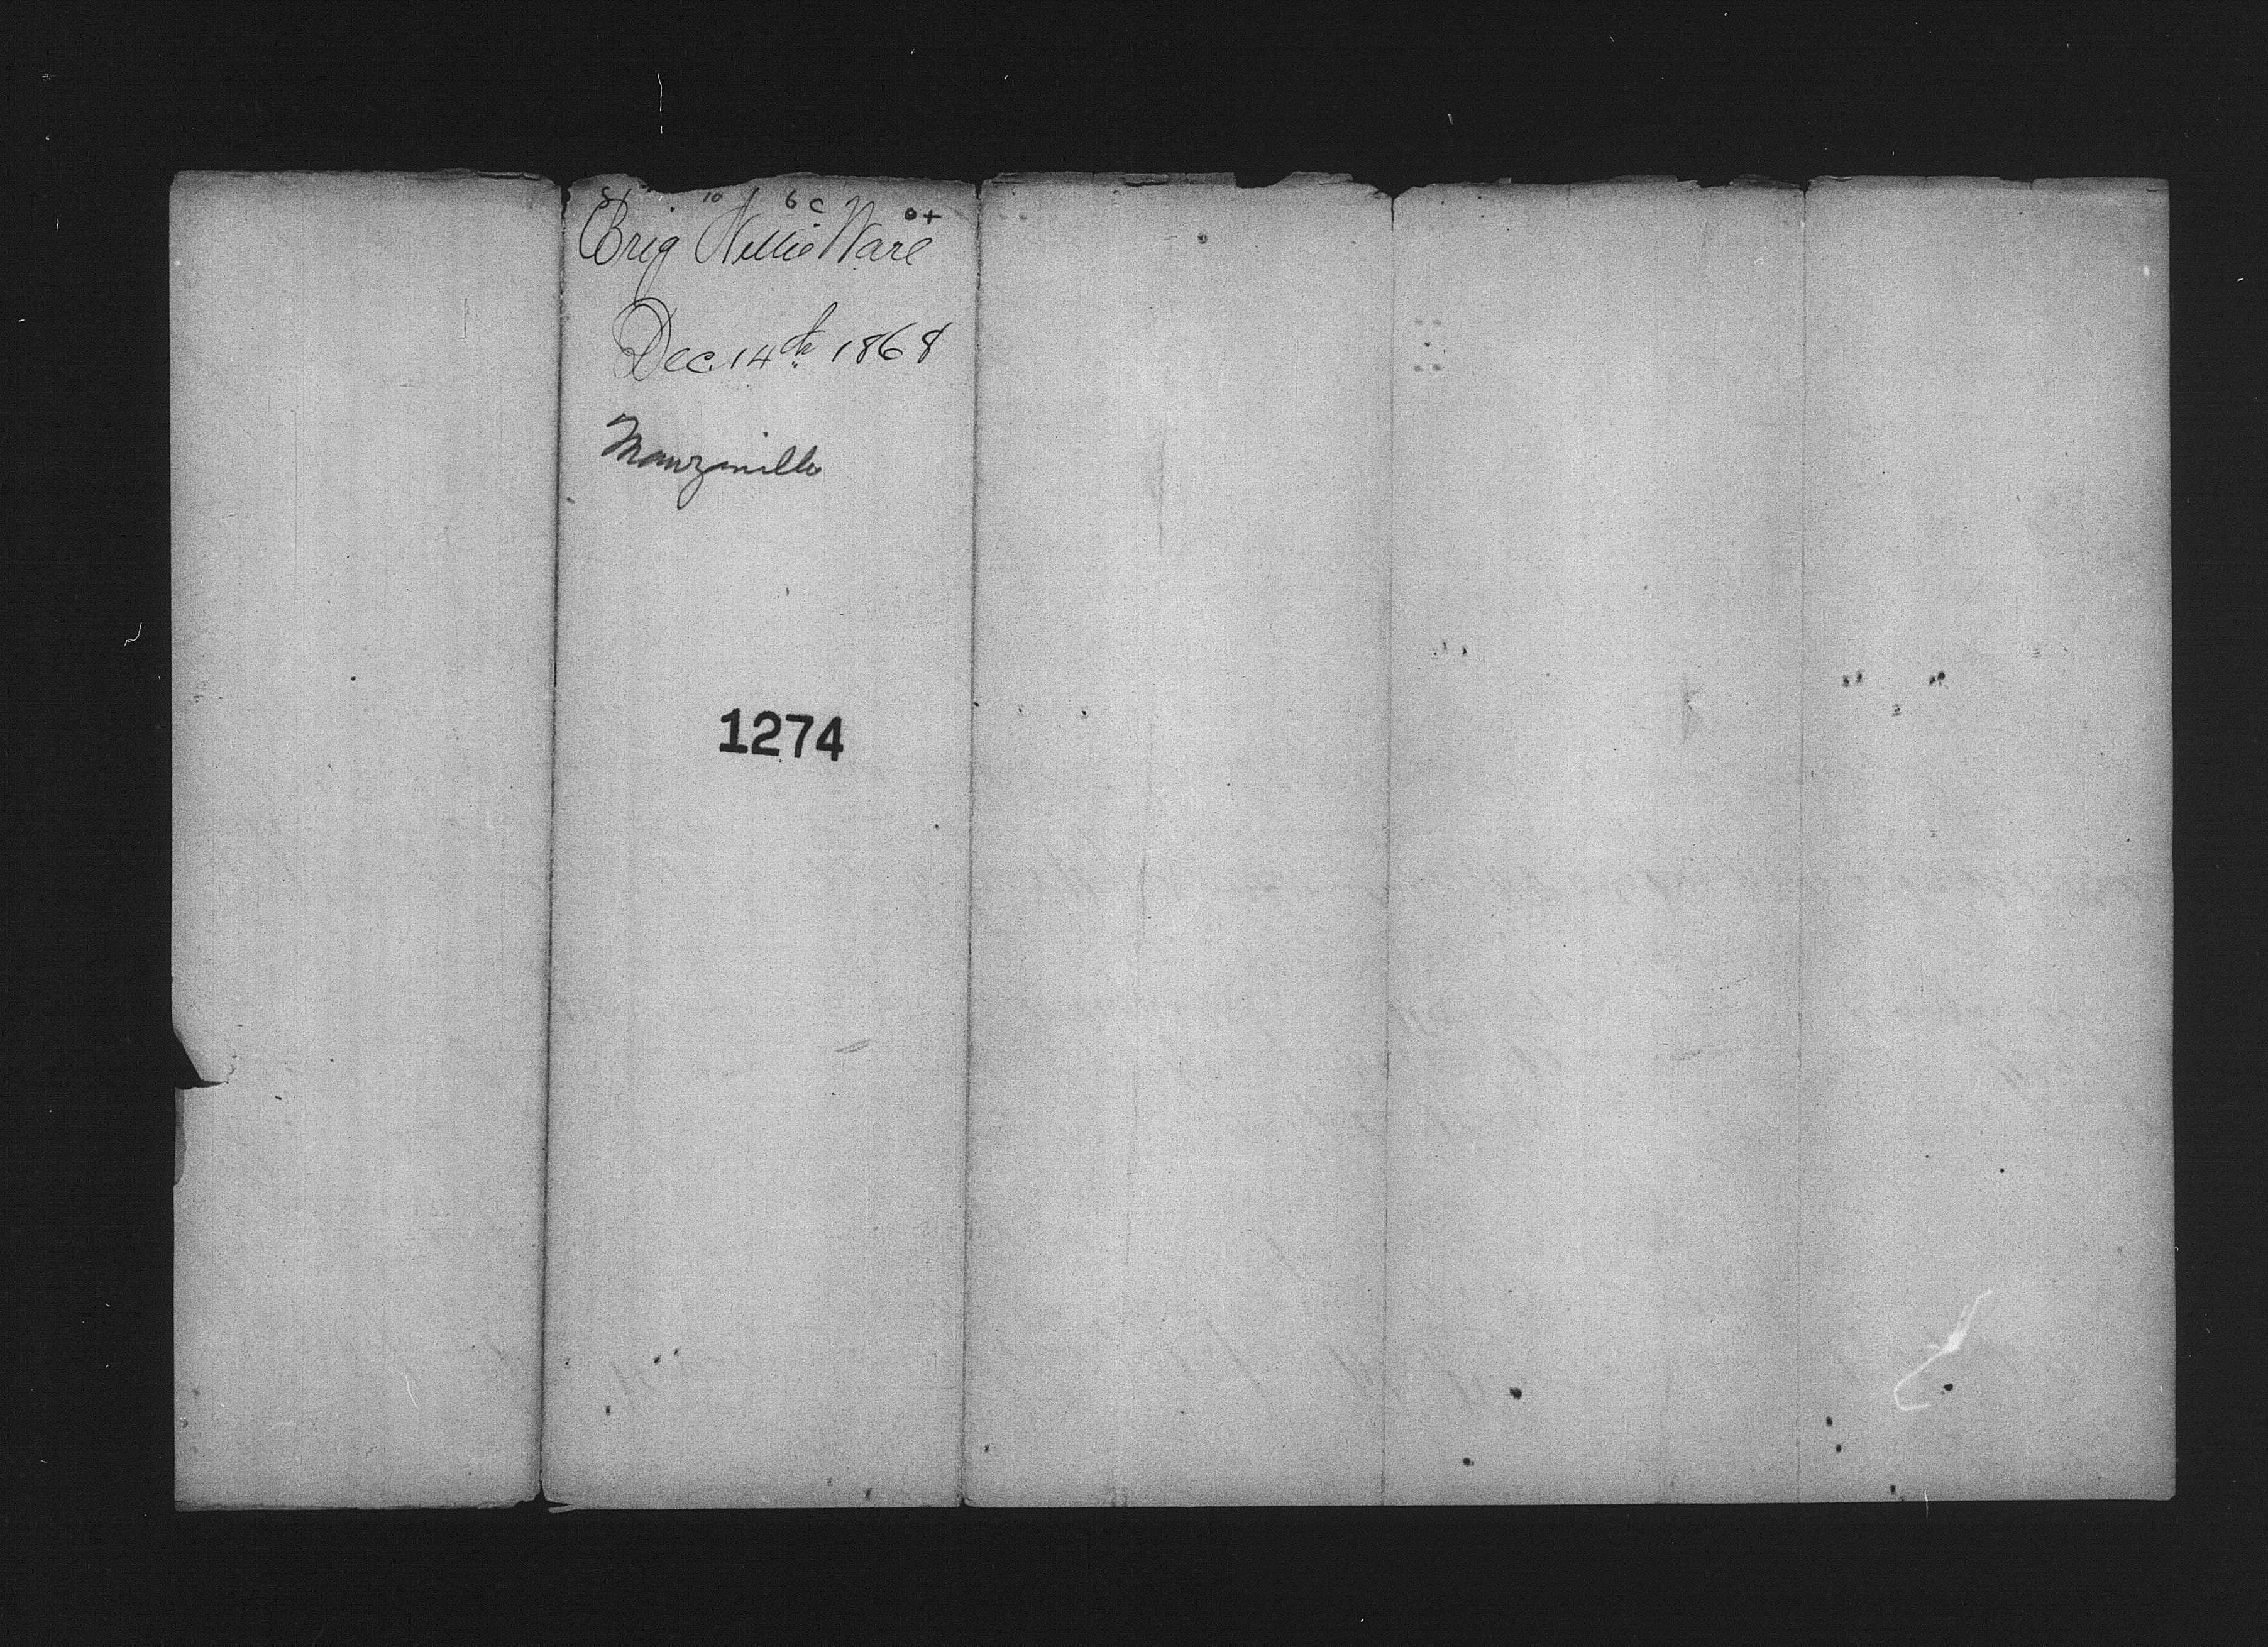 10 6 c 0+
Brig Nellie Ware
Dec. 14th 1868
Manzanillo
1274